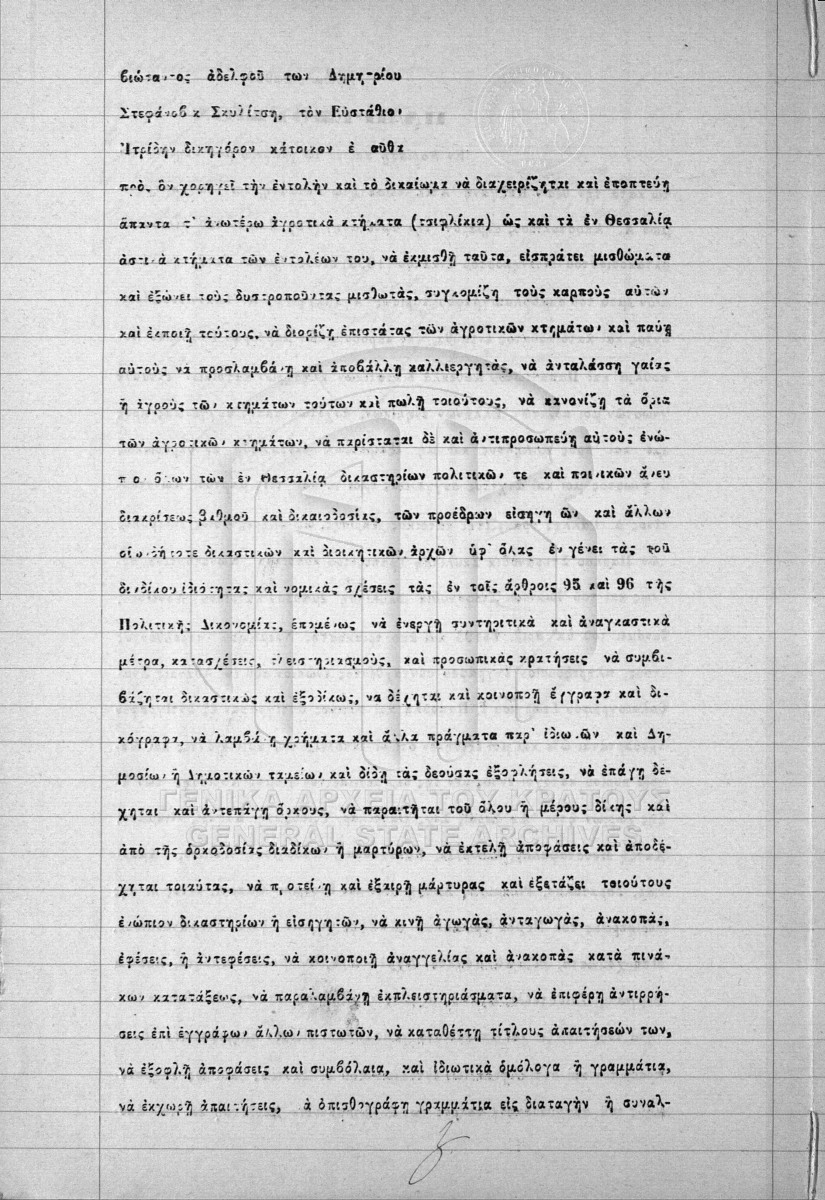 βιώσαντος ἀδελφοῦ των Δημητρίου
Στεφάνοβικ Σκυλίτση, τὸν Εὐστάθιον
Ἰατρίδην δικηγόρον κάτοικον ἐνταῦθα
πρὸς ὃν χορηγεῖ τὴν ἐντολὴν καὶ τὸ δικαίωμα νὰ διαχειρίζηται καὶ ἐποπτεύῃ
ἅπαντα τ' ἀνωτέρω ἀγροτικὰ κτήματα (τσιφλίκια) ὡς καὶ τὰ ἐν Θεσσαλίᾳ
ἀστικὰ κτήματα τῶν ἐντολέων του, νὰ ἐκμισθῇ ταῦτα, εἰσπράτει μισθώματα
καὶ ἐξώνει τοὺς δυστροποῦντας μισθωτάς, συγκομίζῃ τοὺς καρποὺς αὐτῶν
καὶ ἐκποιῇ τούτους, νὰ διορίζῃ ἐπιστάτας τῶν ἀγροτικῶν κτημάτων καὶ παύῃ
αὐτοὺς νὰ προσλαμβάνῃ καὶ ἀποβάλλῃ καλλιεργητάς, νὰ ἀνταλάσσῃ γαίας
ἢ ἀγροὺς τῶν κτημάτων τούτων καὶ πωλῇ τοιούτους, νὰ κανονίζῃ τὰ ὅρια
τῶν ἀγροτικῶν κτημάτων, νὰ παρίσταται δὲ καὶ ἀντιπροσωπεύῃ αὐτοὺς ἐνώ-
πιον ὅλων τῶν ἐν Θεσσαλίᾳ δικαστηρίων πολιτικῶν τε καὶ ποινικῶν ἄνευ
διακρίσεως βαθμοῦ καὶ δικαιοδοσίας, τῶν προέδρων εἰσηγητῶν καὶ ἄλλων
οἱωνδήποτε δικαστικῶν καὶ διοικητικῶν ἀρχῶν ὑφ' ὅλας ἐν γένει τὰς τοῦ
διαδίκου ἰδιότητας καὶ νομικὰς σχέσεις τὰς ἐν τοῖς ἄρθροις 95 καὶ 96 τῆς
Πολιτικῆς Δικονομίας, ἑπομένως νὰ ἐνεργῇ συντηριτικὰ καὶ ἀναγκαστικὰ
μέτρα, κατασχέσεις, πλειστηριασμούς, καὶ προσωπικὰς κρατήσεις νὰ συμβι-
βάζηται δικαστικῶς καὶ ἐξοδίκως, νὰ δέχηται καὶ κοινοποιῇ ἔγγραφα καὶ δι-
κόγραφα, νὰ λαμβάνῃ χρήματα καὶ ἄλλα πράγματα παρ' ἰδιωτῶν καὶ Δη-
μοσίων ἢ Δημοτικῶν ταμείων καὶ δίδῃ τὰς δεούσας ἐξοφλήσεις, νὰ ἐπάγῃ δέ-
χηται καὶ ἀντεπάγῃ ὅρκους, νὰ παραιτῆται τοῦ ὅλου ἢ μέρους δίκης καὶ
ἀπὸ τῆς ὁρκοδοσίας διαδίκων ἢ μαρτύρων, νὰ ἐκτελῇ ἀποφάσεις καὶ ἀποδέ-
χηται τοιαύτας, νὰ προτείνῃ καὶ ἐξαιρῇ μάρτυρας καὶ ἐξετάζει τοιούτους
ἐνώπιον δικαστηρίων ἢ εἰσηγητῶν, νὰ κινῇ ἀγωγάς, ἀνταγωγάς, ἀνακοπάς,
ἐφέσεις, ἢ ἀντεφέσεις, νὰ κοινοποιῇ ἀναγγελίας καὶ ἀνακοπὰς κατὰ πινά-
κων κατατάξεως, νὰ παραλαμβάνῃ ἐκπλειστηριάσματα, νὰ ἐπιφέρῃ ἀντιρρή-
σεις ἐπὶ ἐγγράφων ἄλλων πιστωτῶν, νὰ καταθέττῃ τίτλους ἀπαιτήσεών των,
νὰ ἐξοφλῇ ἀποφάσεις καὶ συμβόλαια, καὶ ἰδιωτικὰ ὁμόλογα ἢ γραμμάτια,
νὰ ἐκχωρῇ ἀπαιτήσεις, νὰ ὀπισθογράφῃ γραμμάτια εἰς διαταγὴν ἢ συναλ-
ΓΕΝΙΚΑ ΑΡΧΕΙΑ ΤΟΥ ΚΡΑΤΟΥΣ
GENERAL STATE ARCHIVES